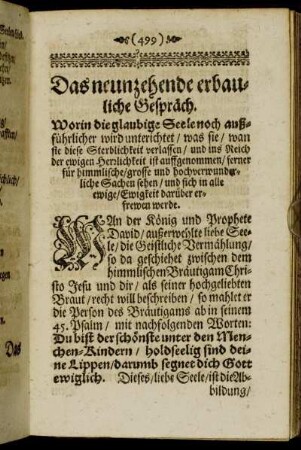 (499)
Das neunzehende erbau-
liche Gespräch.
Worin die glaubige Seele noch auß-
führlicher wird unterrichtet / was sie / wan
sie diese Sterblichkeit verlassen / und ins Reich
der ewigen Herrlichkeit ist auffgenommen / ferner
für himmlische / grosse und hochverwunder-
liche Sachen sehen / und sich in alle
ewige / Ewigkeit darüber er-
frewen werde.
WAn der König und Prophete
David / außerwehlte liebe See-
le / die Geistliche Vermählung /
so da geschiehet zwischen dem
himmlischen Bräutigam Chri-
sto Jesu und dir / als seiner hochgeliebten
Braut / recht will beschreiben / so mahlet er
die Person des Bräutigams ab in seinem
45. Psalm / mit nachfolgenden Worten:
Du bist der schönste unter den Men-
schen-Kindern / holdseelig sind dei-
ne Lippen / darumb segnet dich Gott
ewiglich. Dieses / liebe Seele / ist die Ab-
bildung /
Das